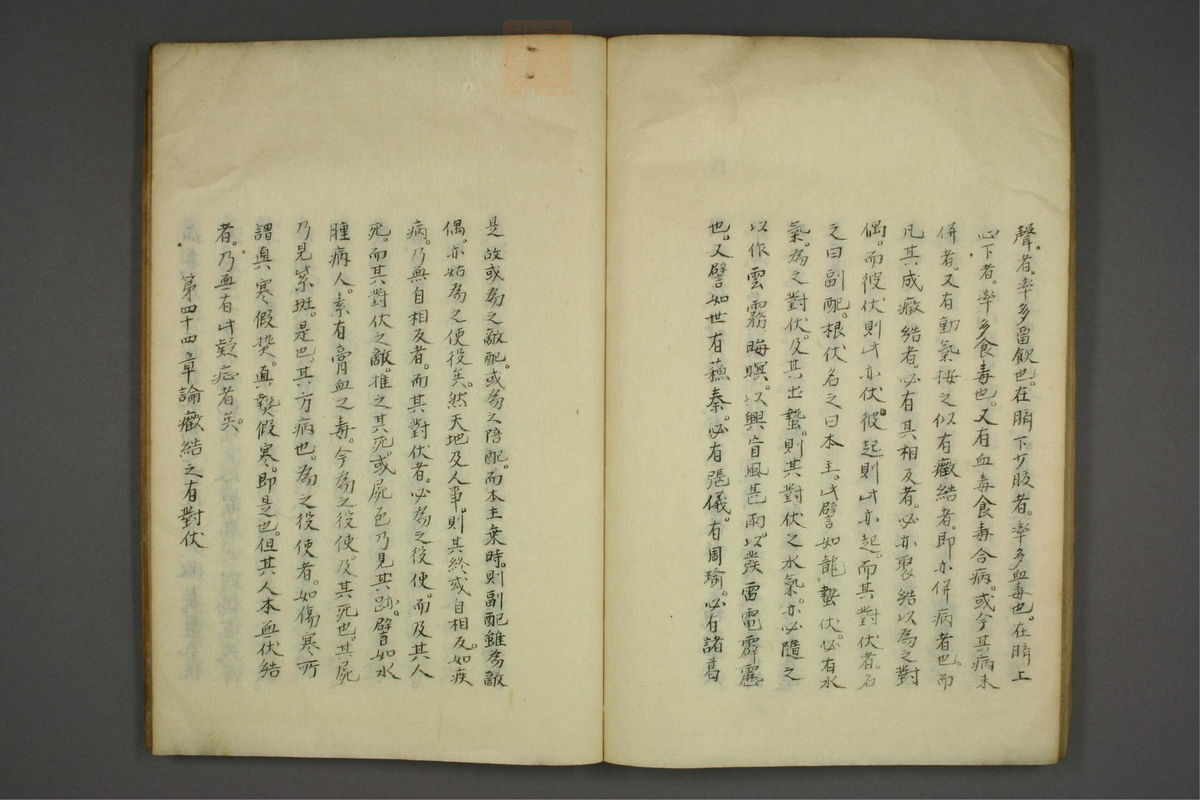 聲者。率多畱飲也。在臍下少腹者。率多血毒也。在臍上
心下者。率多食毒也。又有血毒食毒合病。或今其病未
併者。又有動氣按之似有癥結者。即亦併病者也。而
凡其成癥結者。必有其相反者。必亦聚結以為之對
偶。而彼伏則此亦伏。彼起則此亦起。而其對伏者。名
之曰副配。根伏名之曰本主。此譬如龍蟄伏。必有水
氣。為之對伏。及其出蟄。則其對伏之水氣。亦必隨之
以作雲霧晦暝。以興盲風甚雨。以發雷電霹靂
也。又譬如世有蘓秦。必有張儀。有周瑜。必有諸葛
是故或為之敵配。或為之陪配。而本主乘時。則副配雖為敵
偶。亦始為之使役矣。然天地及人事。則其終或自相反。如疾
病。乃無自相反者。而其對伏者。必為之役使。而及其人
死。而其對伏之敵。推之其死。或屍色乃見其跡。譬如水
腫病人。素有膏血之毒。今為之役使。及其死也。其屍
乃見紫斑。是也。其方病也。為之役使者。如傷寒所
謂真寒假𤍠。真𤍠假寒。即是也。但其人本無伏結
者。乃無有此疑症者矣。
第四十四章論癥結之有對伏